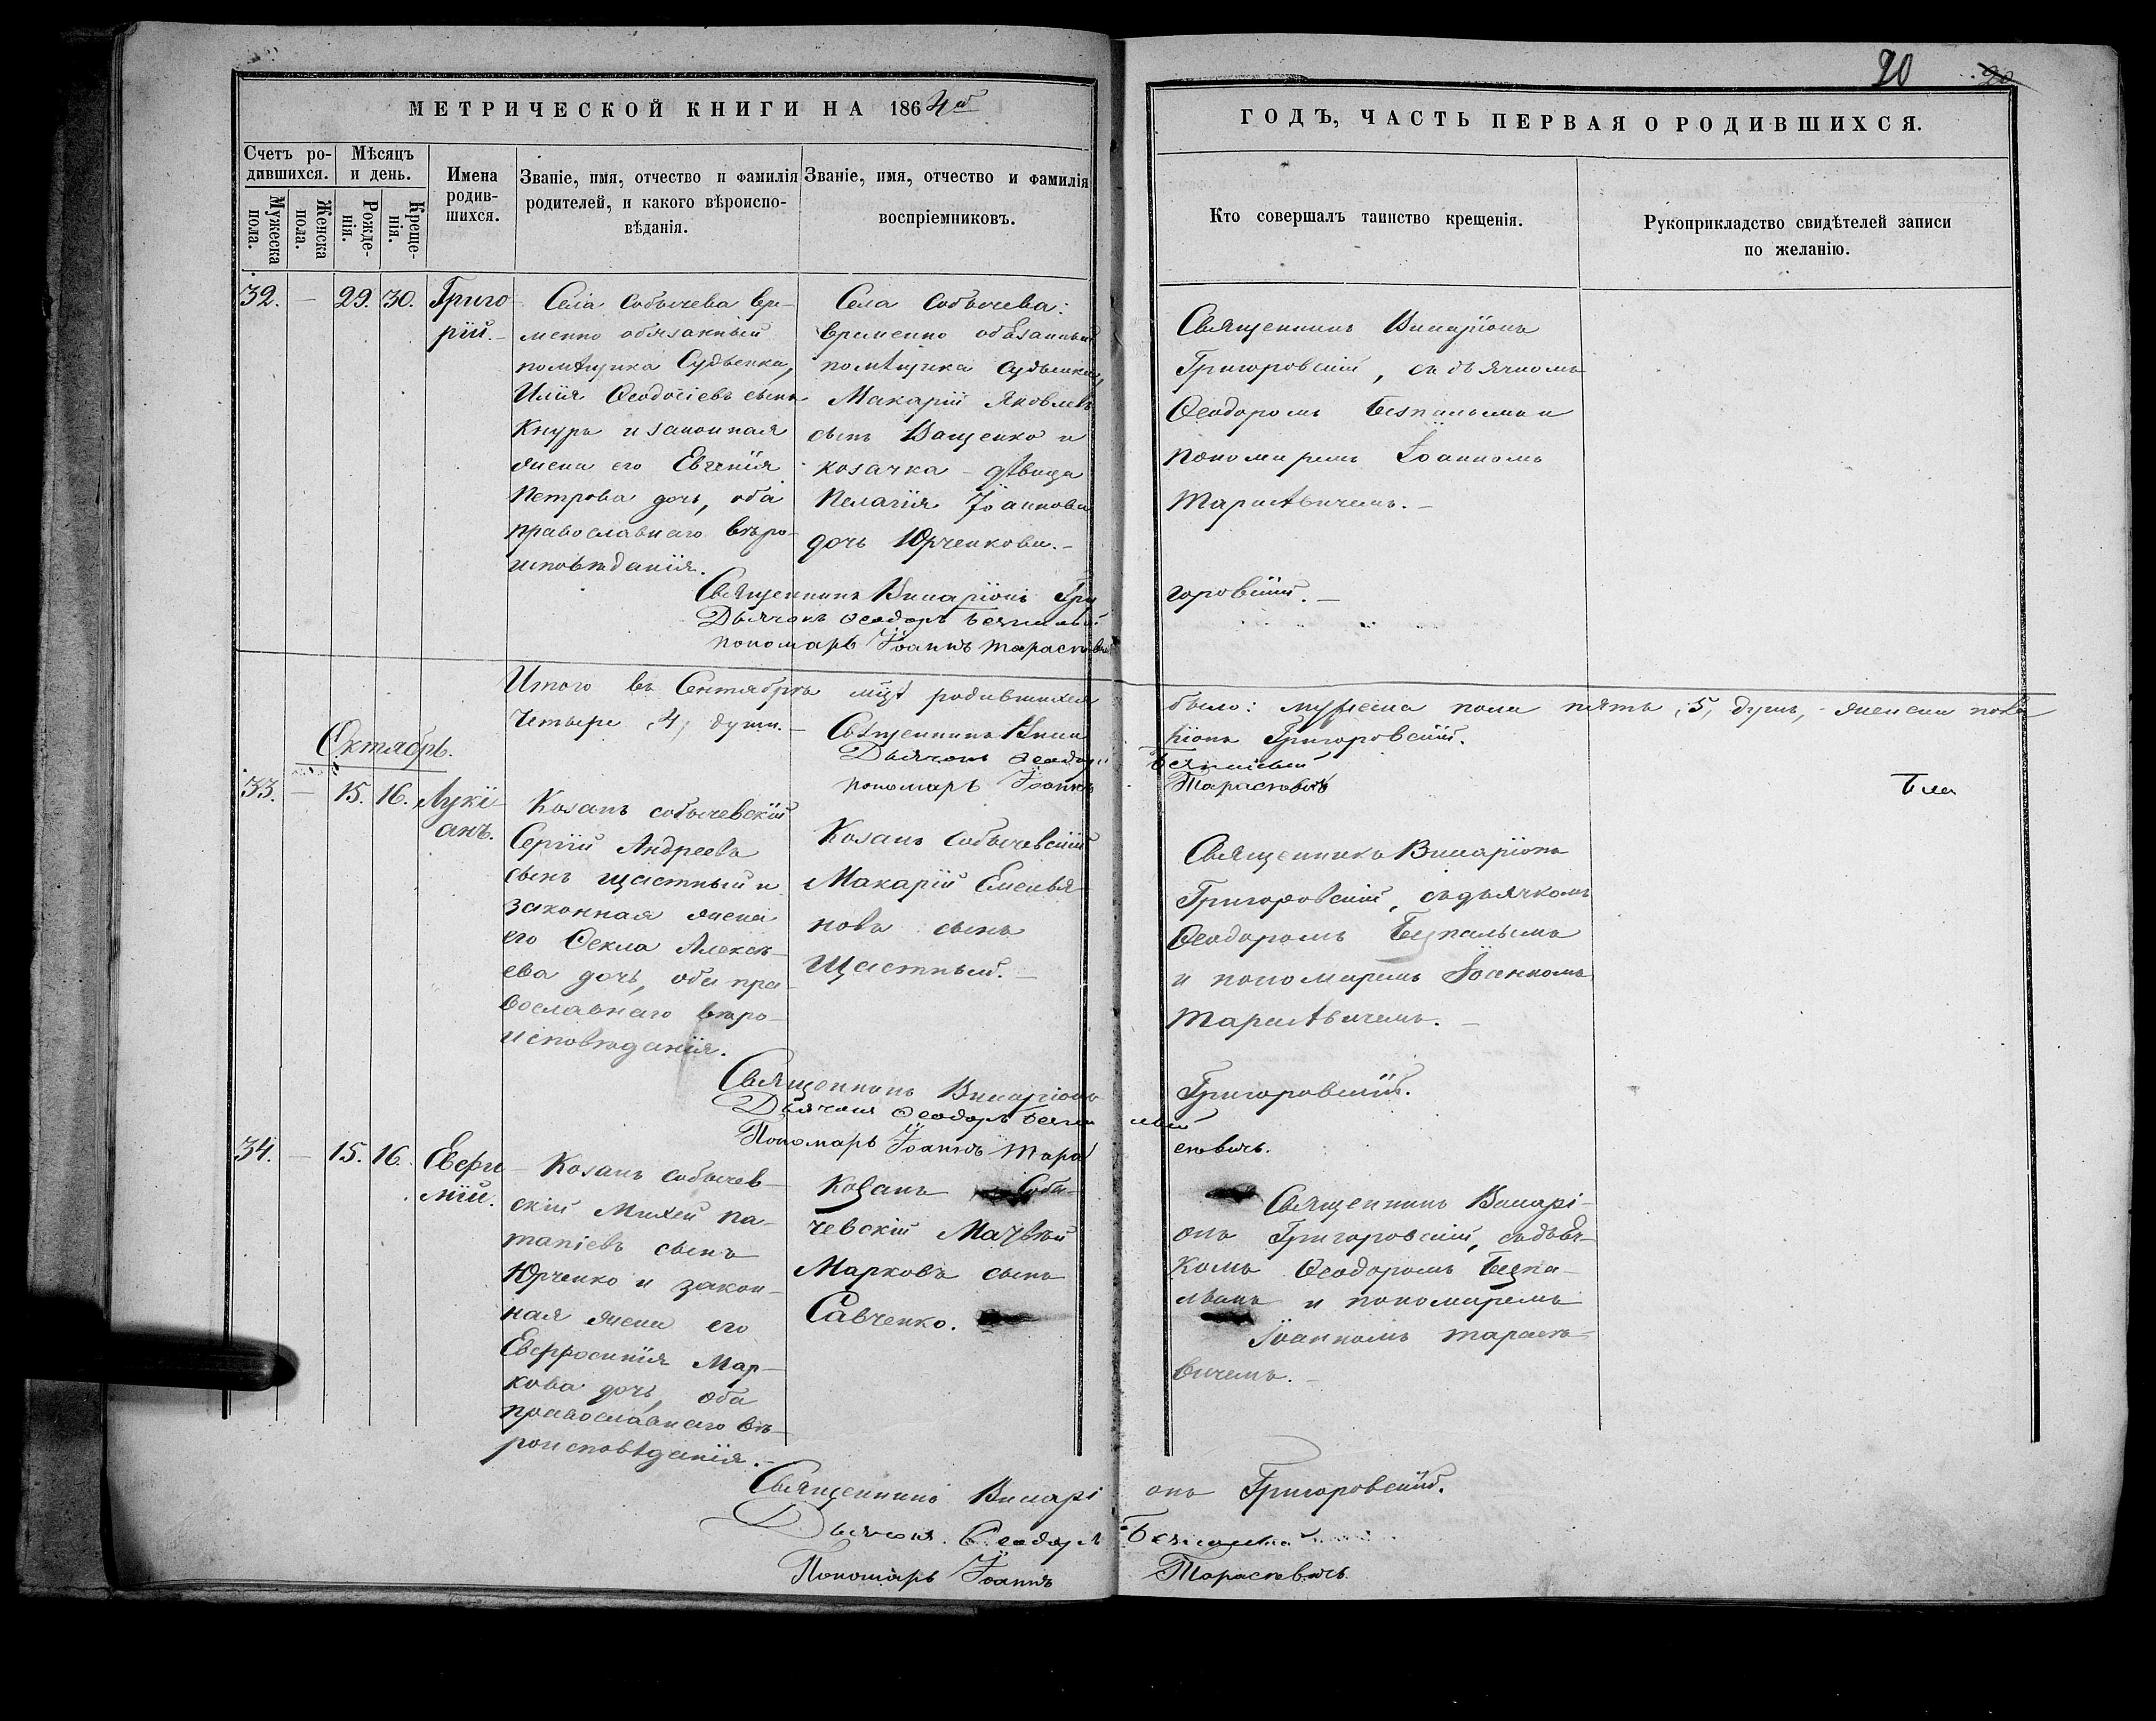 20
20
МЕТРИЧЕСКОЙ КНИГИ НА 1864й
ГОДЪ, ЧАСТЬ ПЕРВАЯ О РОДИВШИХСЯ.
Счетъ ро-
дившихся.
Мужеска
пола.
Женска
пола.
Мѣсяцъ
и день.
Рожде-
нія.
Креще-
нія.
Имена
родив-
шихся.
Званіе, имя, отчество и фамилія
родителей, и какого вѣроиспо-
вѣданія.
Званіе, имя, отчество и фамилія
воспріемниковъ.
Кто совершалъ таинство крещенія.
Рукоприкладство свидѣтелей записи
по желанію.
32. — 29. 30.
Григо
рій.
Села Собычева вре-
менно обязанный
помѣщика Судьенки,
Илія Ѳеодосіевъ сынъ
Кнуръ и законная
жена его Евгенія
Петрова дочь, оба
православнаго вѣро-
исповѣданія.
Села Собычева:
временно обязанный
помѣщика Судьенки,
Макарій Яковлевъ
сынъ Ващенко и
козачка - дѣвица
Пелагія Іоаннова
дочь Юрченкова.
Священникъ Виларіонъ
Григоровскій, съ дьячкомъ
Ѳеодоромъ Безпалымъ и
пономаремъ Іоанномъ
Тарасѣвичемъ.
Священникъ Виларіонъ Гри
горовскій.
Дьячокъ Ѳеодоръ Безпалый
пономаръ Іоаннъ Тарасевичъ
Итого въ Сентябрѣ мцѣ родившихся
было: мужеска пола пять, 5, душъ, женска пола
четыре, 4, души.
Священникъ Вила
ріонъ Григоровскій.
Дьячокъ Ѳеодоръ
Безпалый
пономаръ Іоаннъ
Тарасевичъ
Октябрь.
33. — 15. 16.
Лукі-
анъ.
Козакъ собычевскій
Сергій Андреевъ
сынъ Щастный и
законная жена
его Ѳекла Алексѣ-
ева дочь, оба пра-
вославнаго вѣро-
исповѣданія.
Козакъ Собычевскій
Макарій Емелья-
новъ сынъ
Щастный.
Священникъ Виларіонъ
Григоровскій, съ дьячкомъ
Ѳеодоромъ Безпалымъ
и пономаремъ Іоанномъ
Тарасѣвичемъ.
Священникъ Виларіонъ
Григоровскій.
Дьячокъ Ѳеодоръ Безпа
лый
Пономаръ Іоаннъ Тара
севичъ.
34. — 15. 16.
Евфи-
мій.
Козакъ собычев-
скій Михей Па-
тапіевъ сынъ
Юрченко и закон-
ная жена его
Евфросинія Мар-
кова дочь, оба
православнаго вѣ-
роисповѣданія.
Козакъ Собы-
чевскій Матѳѣй
Марковъ сынъ
Савченко.
Священникъ Вилярі-
онъ Григоровскій, съ дьяч-
комъ Ѳеодоромъ Безпа-
лымъ и пономаремъ
Іоанномъ Тарасѣ-
вичемъ.
Священникъ Виларі
онъ Григоровскій.
Дьячокъ Ѳеодоръ
Безпалый
Пономарь Іоаннъ
Тарасевичъ